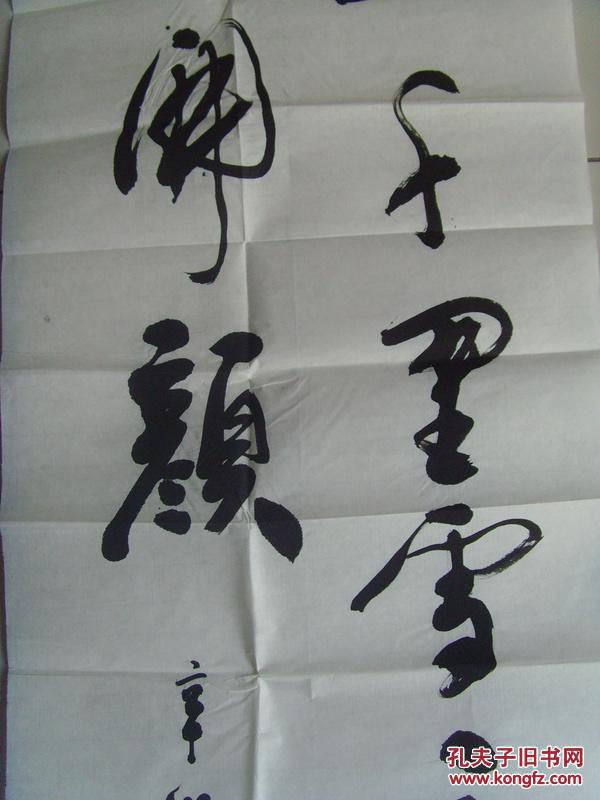 千里雪
開顔
辛
孔夫子旧书网
www.kongfz.com